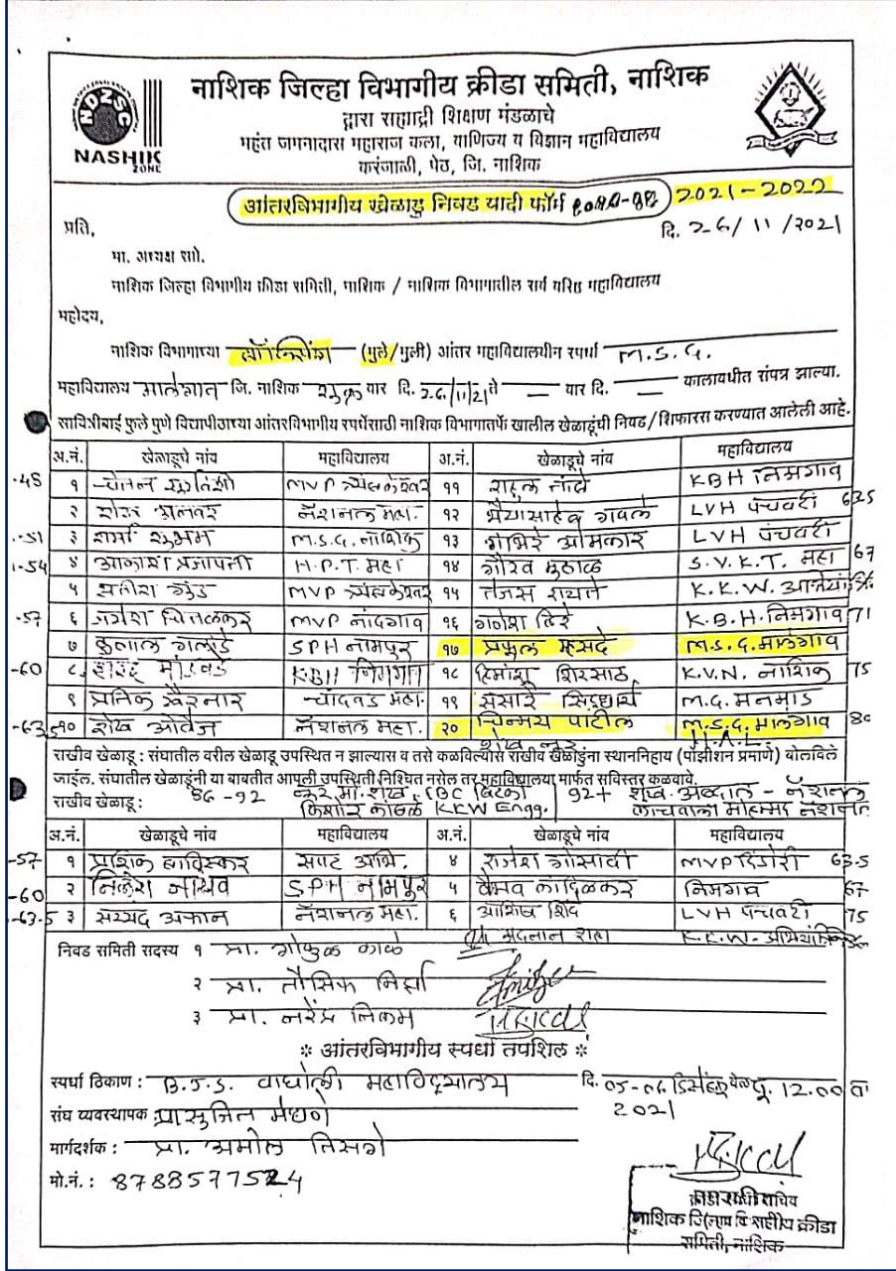 NDZSC
NASHIK
ZONE
नाशिक जिल्हा विभागीय क्रीडा समिती, नाशिक
द्वारा सह्याद्री शिक्षण मंडळाचे
महंत जमनादास महाराज कला, वाणिज्य व विज्ञान महाविद्यालय
करंजाळी, पेठ, जि. नाशिक
आंतरविभागीय खेळाडू निवड यादी फॉर्म 2021-2022
प्रति,
दि. 26/11/2021
मा. अध्यक्ष सो.
नाशिक जिल्हा विभागीय क्रीडा समिती, नाशिक / नाशिक विभागातील सर्व वरिष्ठ महाविद्यालय
महोदय,
नाशिक विभागाच्या बॉक्सिंग (मुले/मुली) आंतर महाविद्यालयीन स्पर्धा M.S.G.
महाविद्यालय मालेगाव जि. नाशिक शुक्र वार दि. 26/11/21 ते — वार दि. — कालावधीत संपन्न झाल्या.
सावित्रीबाई फुले पुणे विद्यापीठाच्या आंतरविभागीय स्पर्धेसाठी नाशिक विभागातर्फे खालील खेळाडूंची निवड/शिफारस करण्यात आलेली आहे.
अ.नं. खेळाडूचे नांव महाविद्यालय अ.नं. खेळाडूचे नांव महाविद्यालय
-48 १ चेतन MVP त्र्यंबकेश्वर ११ राहुल KBH निमगाव
२ शेख नॅशनल महा. १२ भैयासाहेब गवळे LVH पंचवटी 63.5
-51 ३ शर्मा शुभम M.S.G. नाशिक १३ ओमकार LVH पंचवटी
-54 ४ आकाश प्रजापती H.P.T. महा १४ गौरव S.V.K.T. महा 67
५ सतीश MVP त्र्यंबकेश्वर १५ तेजस रायते K.K.W.
-57 ६ चित्तळकर MVP नांदगाव १६ गणेश K.B.H. निमगाव 71
७ कुलाल SPH नामपूर १७ प्रफुल M.S.G. मालेगाव
-60 ८ KBH निमगाव १८ हिमांशू शिरसाठ K.V.N. नाशिक 75
९ प्रतिक खैरनार चांदवड महा. १९ संसारे सिद्धार्थ M.G. मनमाड
-63.5 १० शेख ओवेज नॅशनल महा. २० चिन्मय पाटील M.S.G. मालेगाव 80
राखीव खेळाडू : संघातील वरील खेळाडू उपस्थित न झाल्यास व तसे कळविल्यास राखीव खेळाडूंना स्थाननिहाय (पोझीशन प्रमाणे) बोलविले
जाईल. संघातील खेळाडूंनी या बाबतीत आपली उपस्थिती निश्चित नसेल तर महाविद्यालया मार्फत सविस्तर कळवावे.
राखीव खेळाडू : 86-92 92+ शेख नॅशनल
किशोर कांबळे KKW Engg. नॅशनल
अ.नं. खेळाडूचे नांव महाविद्यालय अ.नं. खेळाडूचे नांव महाविद्यालय
-57 १ सपट अभि. ४ राजेश गोसावी MVP दिंडोरी 63.5
-60 २ निलेश जाधव SPH नामपूर ५ वैभव निमगाव 67
-63.5 ३ सय्यद नॅशनल महा. ६ आशिष शिंदे LVH पंचवटी 75
K.K.W.
निवड समिती सदस्य १ प्रा. गोकुळ काळे
२ प्रा. तौसिफ मिर्झा
३ प्रा. नरेंद्र निकम
※ आंतरविभागीय स्पर्धा तपशिल ※
स्पर्धा ठिकाण : B.J.S. वाघोली महाविद्यालय दि. 05-06 डिसेंबर वेळ दु. 12.00 वा
2021
संघ व्यवस्थापक :
मार्गदर्शक : प्रा. अमोल तिसगे
मो.नं. : 8788577524
क्रीडा समिती सचिव
नाशिक जिल्हा विभागीय क्रीडा
समिती, नाशिक